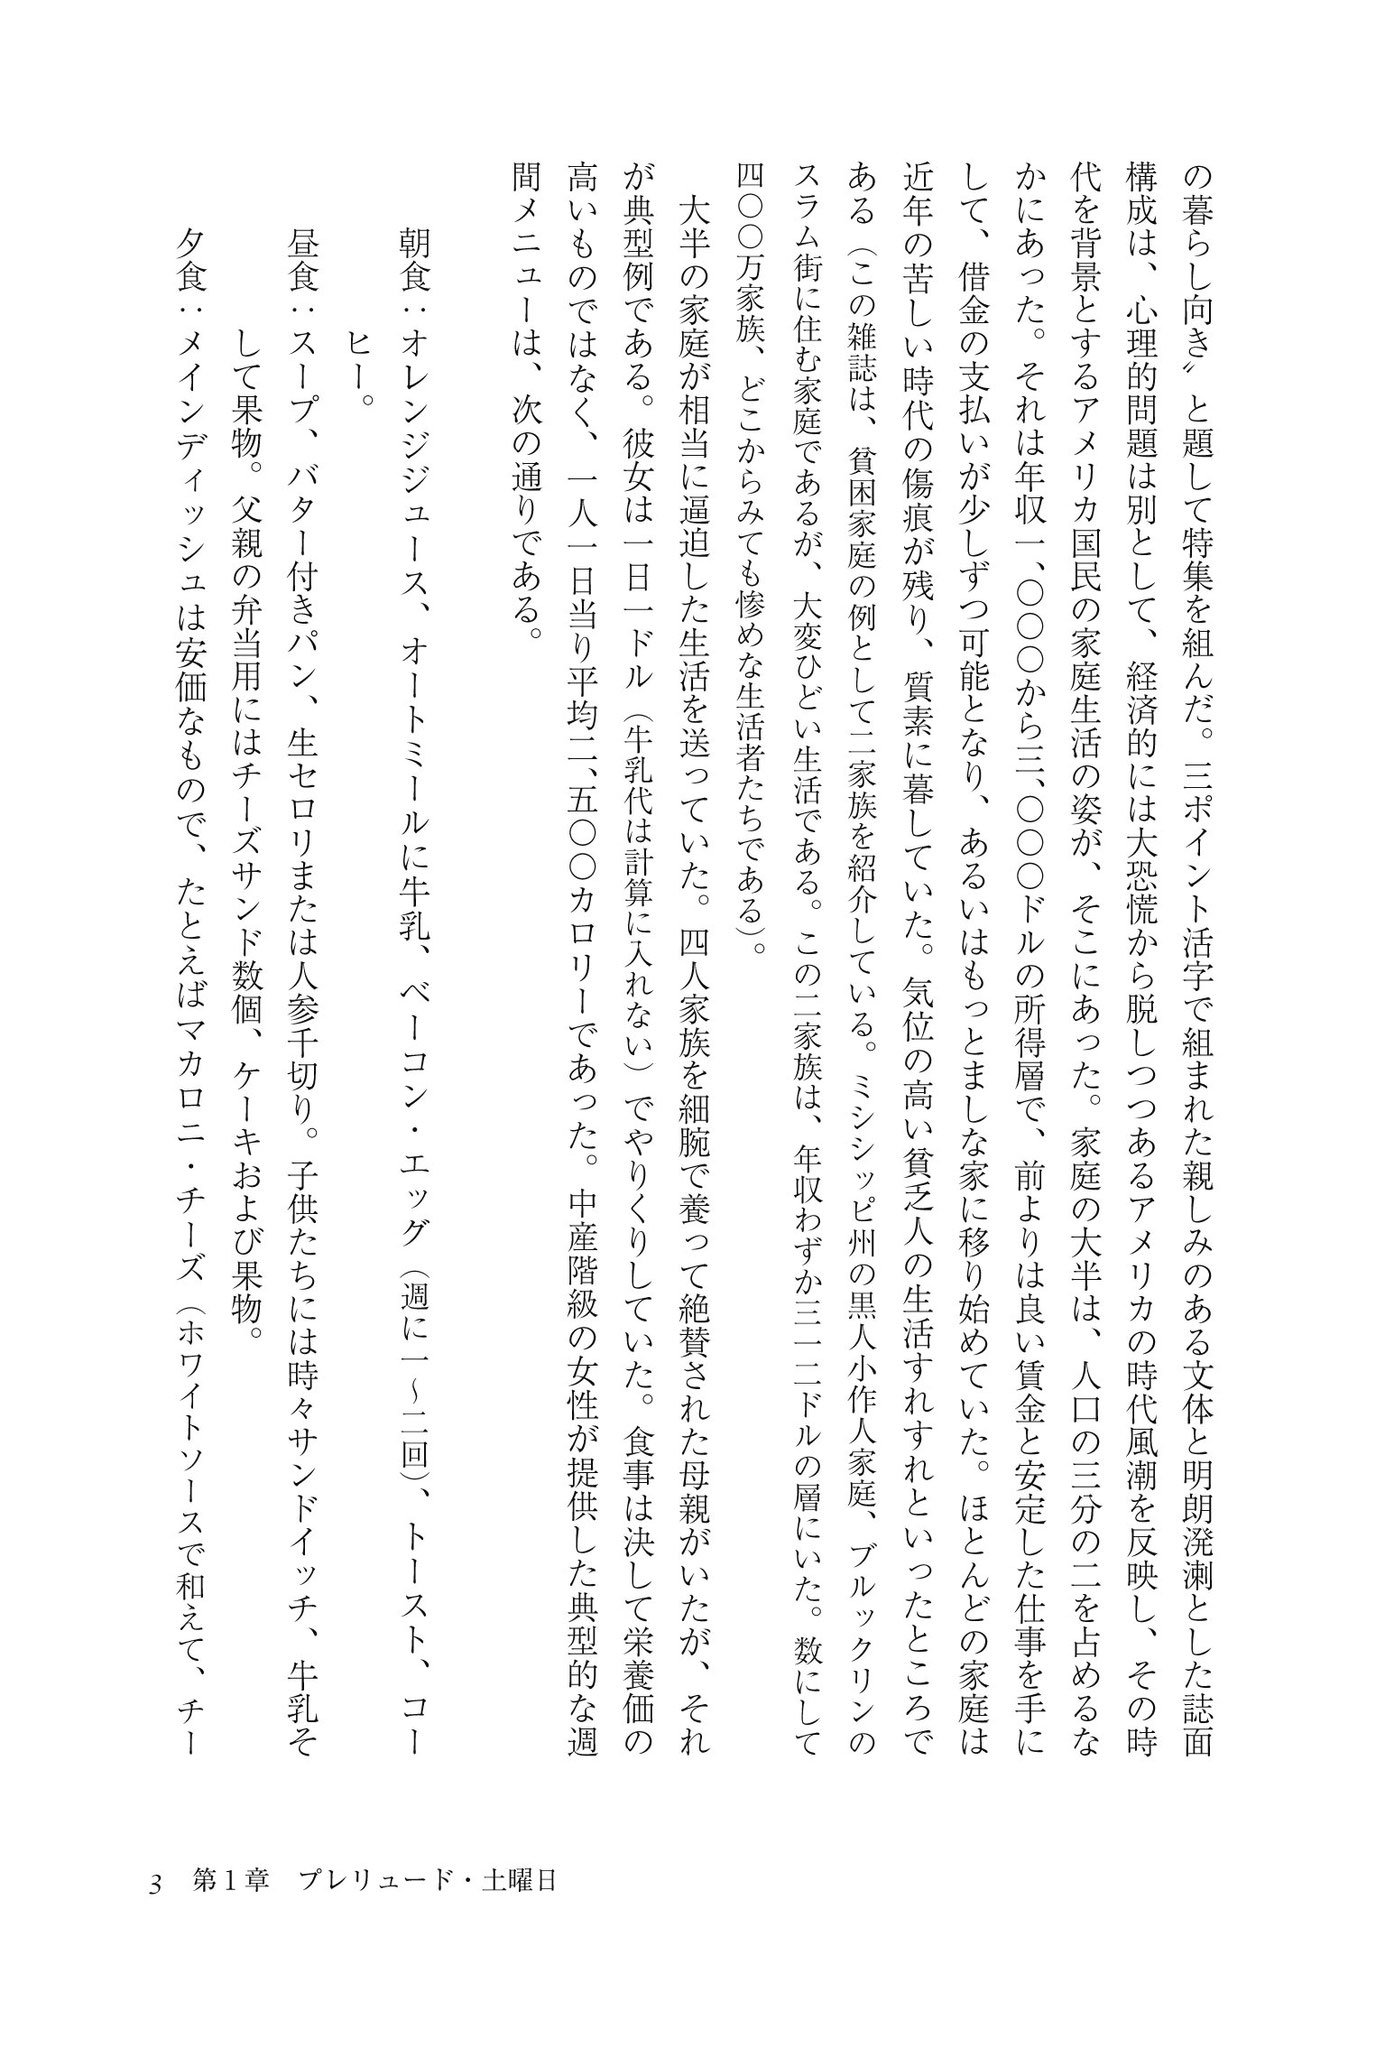 の暮らし向き〟と題して特集を組んだ。三ポイント活字で組まれた親しみのある文体と明朗溌溂とした誌面
構成は、心理的問題は別として、経済的には大恐慌から脱しつつあるアメリカの時代風潮を反映し、その時
代を背景とするアメリカ国民の家庭生活の姿が、そこにあった。家庭の大半は、人口の三分の二を占めるな
かにあった。それは年収一、〇〇〇から三、〇〇〇ドルの所得層で、前よりは良い賃金と安定した仕事を手に
して、借金の支払いが少しずつ可能となり、あるいはもっとましな家に移り始めていた。ほとんどの家庭は
近年の苦しい時代の傷痕が残り、質素に暮していた。気位の高い貧乏人の生活すれすれといったところで
ある（この雑誌は、貧困家庭の例として二家族を紹介している。ミシシッピ州の黒人小作人家庭、ブルックリンの
スラム街に住む家庭であるが、大変ひどい生活である。この二家族は、年収わずか三一二ドルの層にいた。数にして
四〇〇万家族、どこからみても惨めな生活者たちである）。
大半の家庭が相当に逼迫した生活を送っていた。四人家族を細腕で養って絶賛された母親がいたが、それ
が典型例である。彼女は一日一ドル（牛乳代は計算に入れない）でやりくりしていた。食事は決して栄養価の
高いものではなく、一人一日当り平均二、五〇〇カロリーであった。中産階級の女性が提供した典型的な週
間メニューは、次の通りである。
朝食：オレンジジュース、オートミールに牛乳、ベーコン・エッグ（週に一〜二回）、トースト、コー
ヒー。
昼食：スープ、バター付きパン、生セロリまたは人参千切り。子供たちには時々サンドイッチ、牛乳そ
して果物。父親の弁当用にはチーズサンド数個、ケーキおよび果物。
夕食：メインディッシュは安価なもので、たとえばマカロニ・チーズ（ホワイトソースで和えて、チー
3 第１章 プレリュード・土曜日